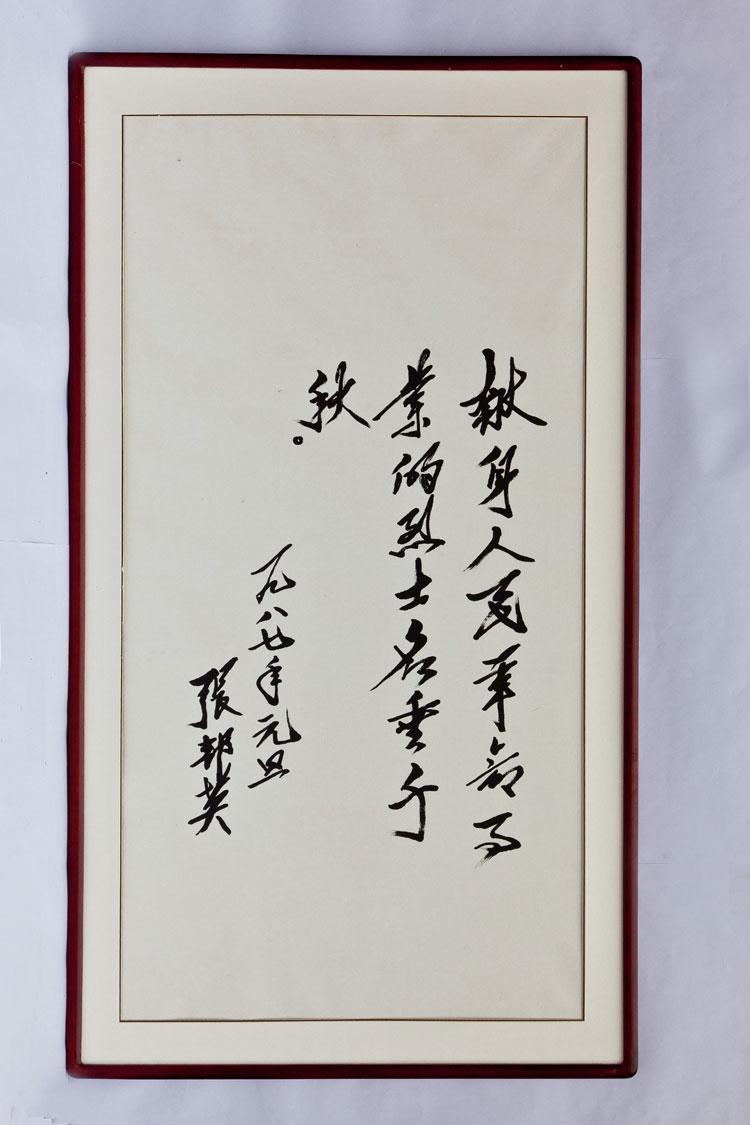 献身人民革命事
业的烈士名垂千
秋。
一九八七年元旦
張邦英